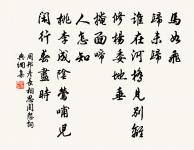 馬如飛
歸未歸
誰在河橋見別離
修楊委地垂
掩面啼
人怎知
桃李成陰鶯哺兒
閑行春盡時
周邦彥長相思閨怨詞
典網集